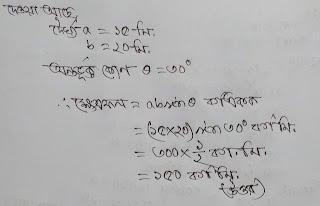 দেওয়া আছে,
দৈর্ঘ্য a = ১৫ মি.
b = ২০ মি.
অন্তর্ভুক্ত কোণ θ = ৩০°
∴ ক্ষেত্রফল = ab sinθ বর্গ একক
= (১৫×২০) sin ৩০° বর্গ মি.
= ৩০০ × ১/২ বর্গ মি.
= ১৫০ বর্গ মি.
(উত্তর)